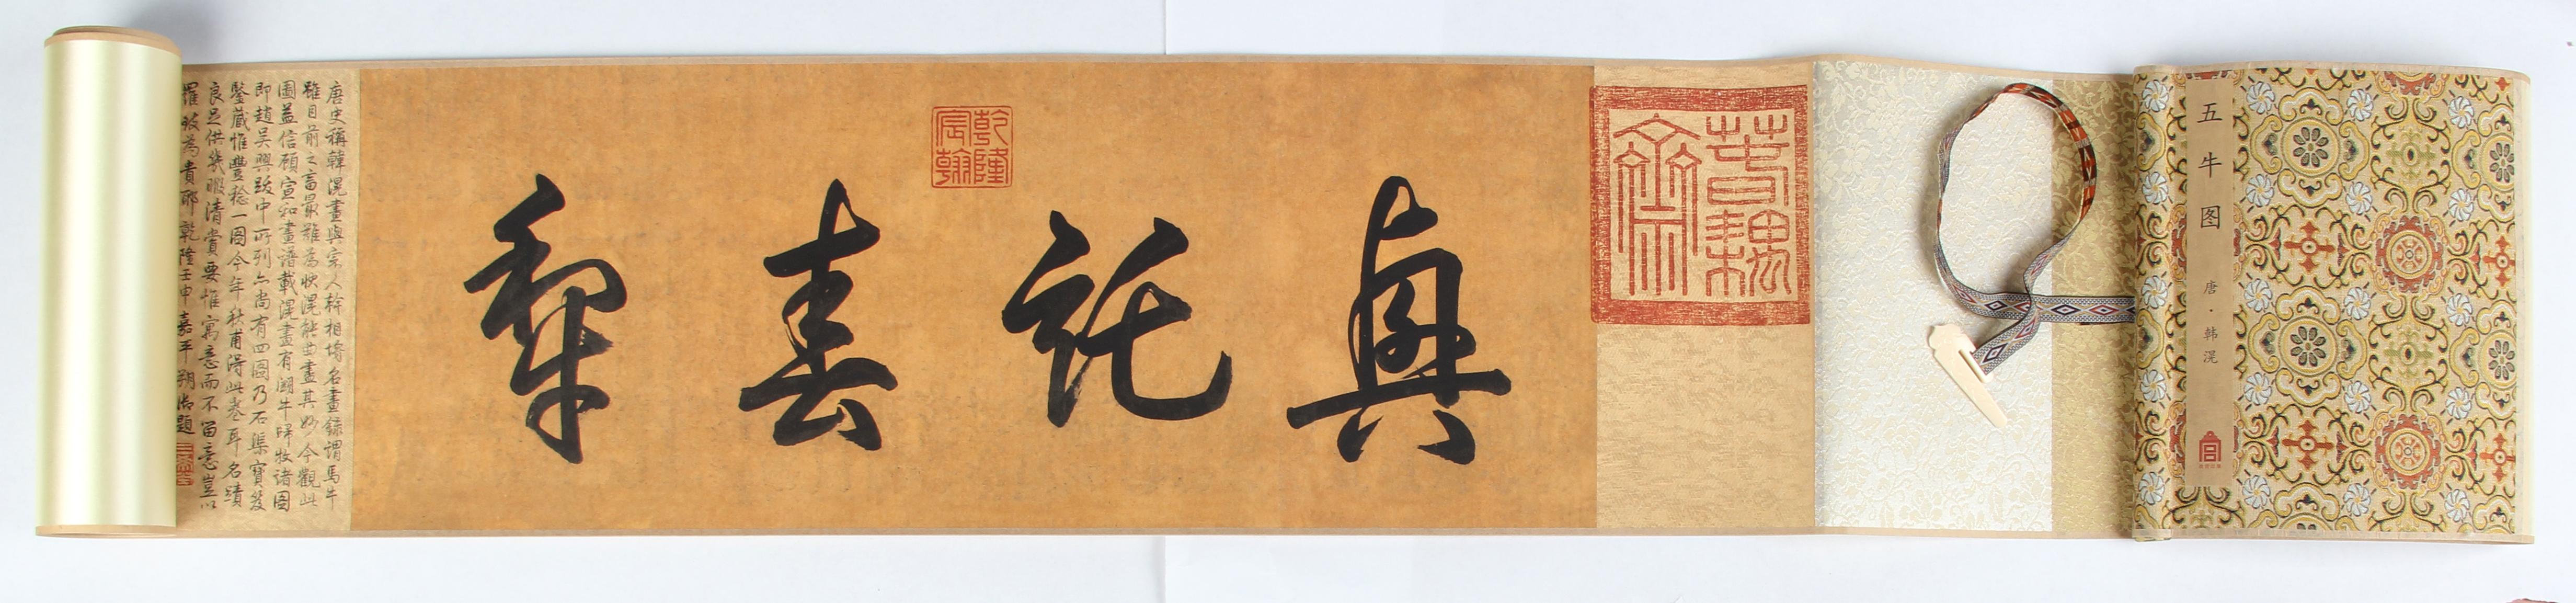 五牛图
唐·韩滉
春耦齋
興託春犁
乾隆宸翰
唐史稱韓滉畫與宗人幹相埒名畫錄謂馬牛
雖目前之畜最難為狀滉能曲盡其妙今觀此
圖益信顧宣和畫譜載滉畫有鬬牛歸牧諸圖
即趙吳興跋中所列亦尚有四圖乃石渠寶笈
鑒藏惟豐稔一圖今年秋甫得此卷耳名蹟
良足供幾暇清賞要惟寓意而不留意豈以
羅致為貴耶乾隆壬申嘉平朔御題